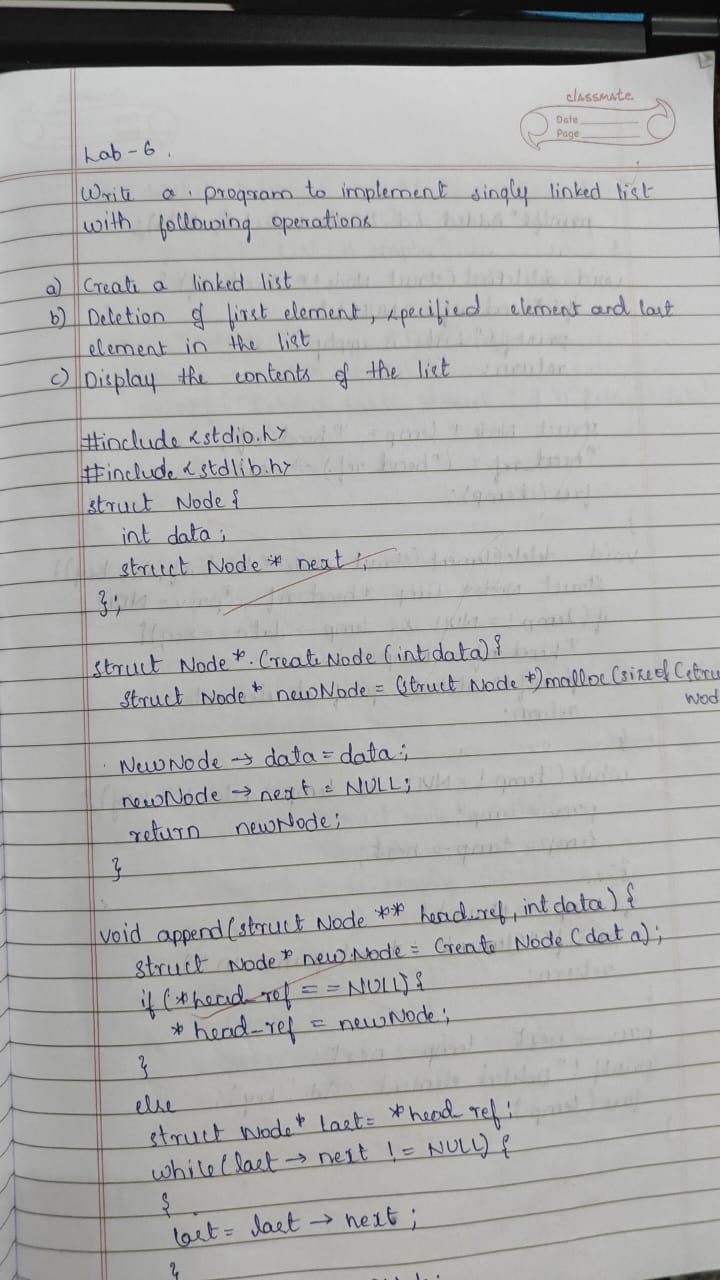 classmate
Date
Page
Lab-6.
Write a program to implement singly linked list
with following operations
a) Create a linked list
b) Deletion of first element, specified element and last
element in the list
c) Display the contents of the list
#include <stdio.h>
#include <stdlib.h>
struct Node {
int data;
struct Node * next;
};
struct Node *. Create Node (int data) {
struct Node * newNode = (struct Node *)malloc (sizeof (stru
Nod
NewNode → data = data;
newNode → next = NULL;
return newNode;
}
void append (struct Node ** head_ref, int data) {
struct Node * newNode = Create Node (data);
if (*head_ref == NULL) {
* head_ref = newNode;
}
else
struct Node * last = *head_ref;
while (last → next != NULL) {
{
last = last → next;
}